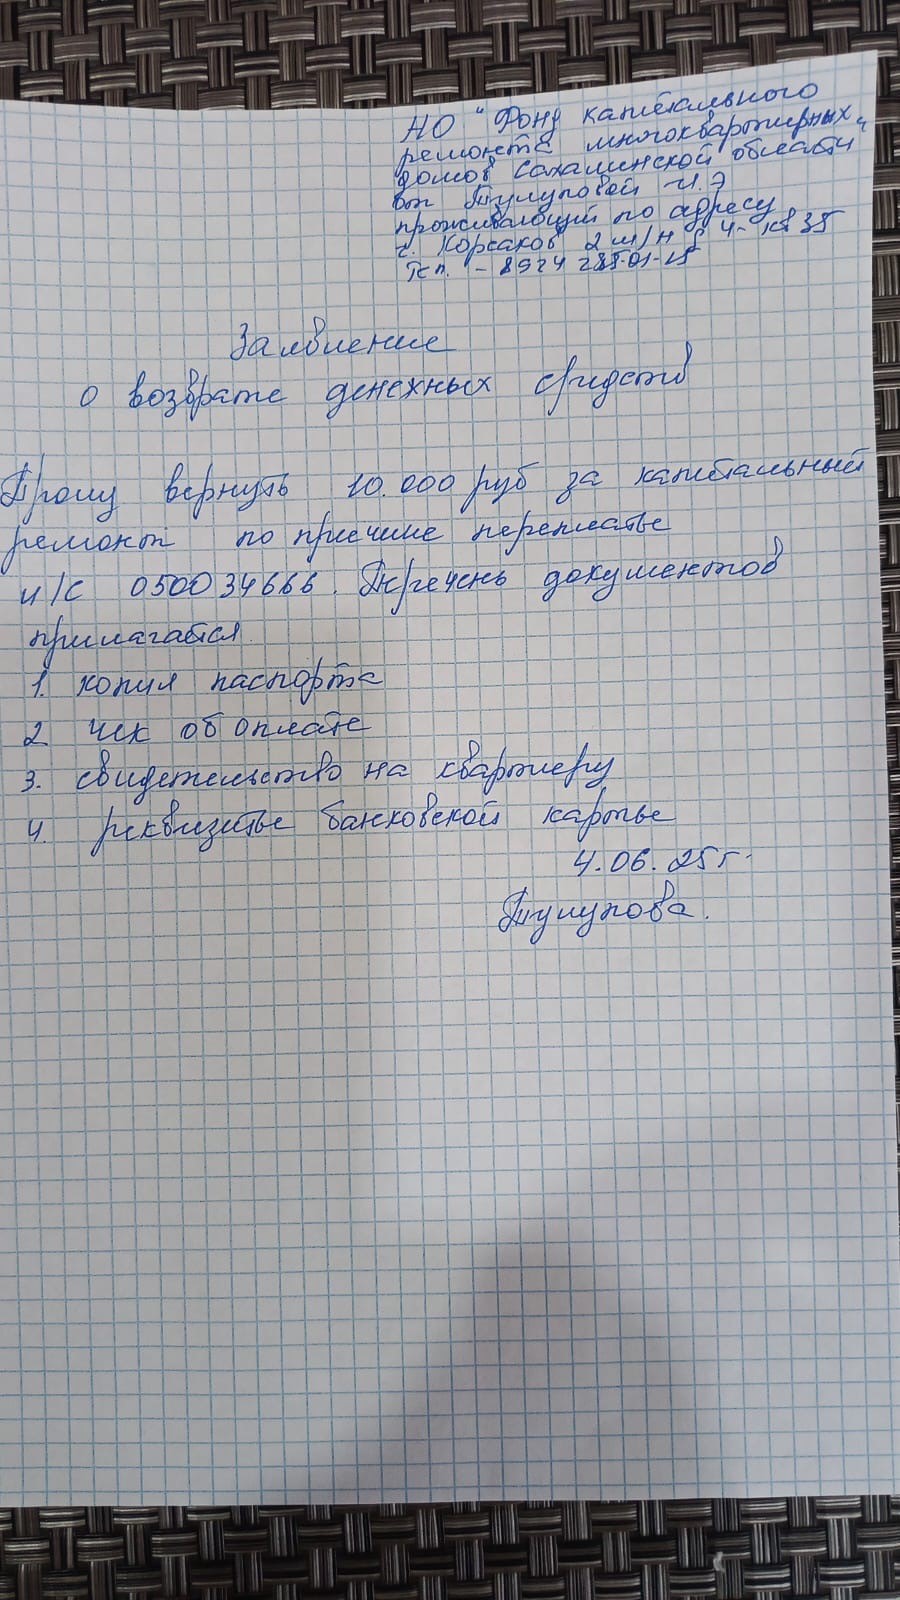 НО "Фонд капитального
ремонта многоквартирных
домов Сахалинской области"
от Тулуповой И.Э
проживающий по адресу
г. Корсаков 2 м/н д 4- кв 35
Тел. - 8924
Заявление
о возврате денежных средств
Прошу вернуть 10.000 руб за капитальный
ремонт по причине переплаты
л/с 050034666. Перечень документов
прилагается
1. копия паспорта
2 чек об оплате
3. свидетельство на квартиру
4. реквизиты банковской карты
4.06.25г.
Тулупова.